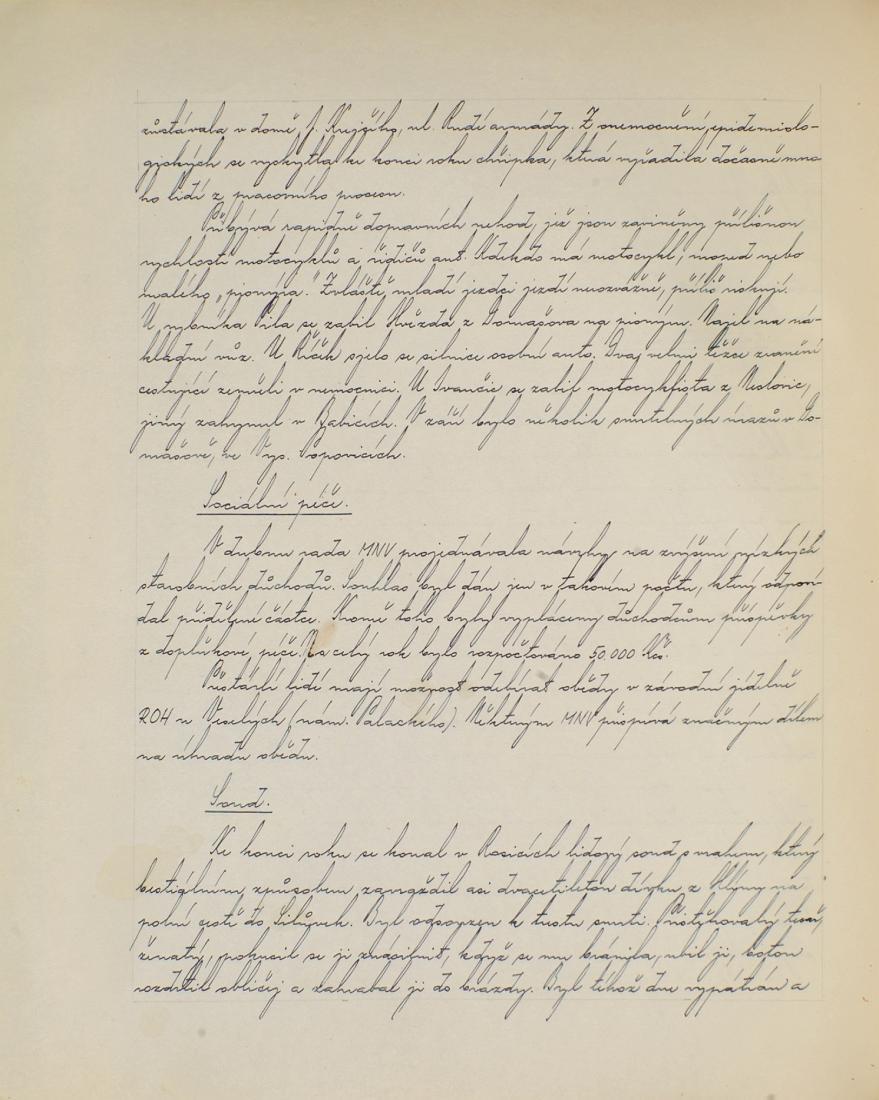 zůstávala v domě f. Krejčího, ul. Rudé armády. Z onemocnění epidemiolo-
gických se vyskytla ke konci roku chřipka, která vyřadila dočasně mno-
ho lidí z pracovního procesu.
Přibývá rapidně dopravních nehod, jež jsou zaviněny přílišnou
rychlostí motocyklů a řidičů aut. Kdekdo má motocykl, moped nebo
malého „pionýra." Zvláště mladí jezdci jezdí neozvážně, příliš riskují.
U rybníka Pila se zabil Hvězda z Domašova na pionýru. Najel na ná-
kladní vůz. U Říček sjelo se silnice osobní auto. Dva velmi těžce zranění
cestující zemřeli v nemocnici. U Ivančic se zabil motocyklista z Neslovic,
jiný zahynul v Babicích. V září bylo několik smrtelných úrazů v Do-
mašově, ve Vys. Popovicích.
Sociální péče.
V dubnu rada MNV projednávala návrhy na zvýšení nízkých
starobních důchodů. Souhlas byl dán jen v takovém počtu, který odpoví-
dal přidělené částce. Kromě toho byly vypláceny důchodcům příspěvky
z doplňkové péče. Na celý rok bylo rozpočtováno 50.000 Kčs.
Přestárlí lidé mají možnost odebírat obědy v závodní jídelně
ROH u Veselých (nám. Palackého). Některým MNV přispívá značným dílem
na úhradu obědu.
Soud.
Ke konci roku se konal v Rosicích lidový soud s vrahem, který
bestiálním způsobem zavraždil asi dvacetiletou dívku z Hlíny na
polní cestě do Silůvek. Byl odsouzen k trestu smrti. Přistěhovalý tesař,
ženatý, pokusil se ji znásilnit, když se mu bránila, ubil ji, botou
rozdrtil obličej a zahrabal ji do brázdy. Byl téhož dne vypátrán a